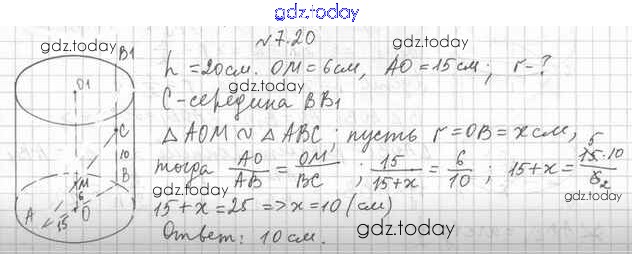 gdz.today
№7.20
gdz.today
gdz.today
h = 20см. OM = 6 см, AO = 15 см; r - ?
C-середина BB₁
gdz.today
△AOM ∾ △ABC; пусть r = OB = x см,
тогда AO/AB = OM/BC ; 15/(15+x) = 6/10 ; 15+x = (15·10)/6 5 2
15 + x = 25 => x = 10 (см)
gdz.today
gdz.today
Ответ: 10 см.
gdz.today
B1
O1
C
10
M
B
6
A
15
O